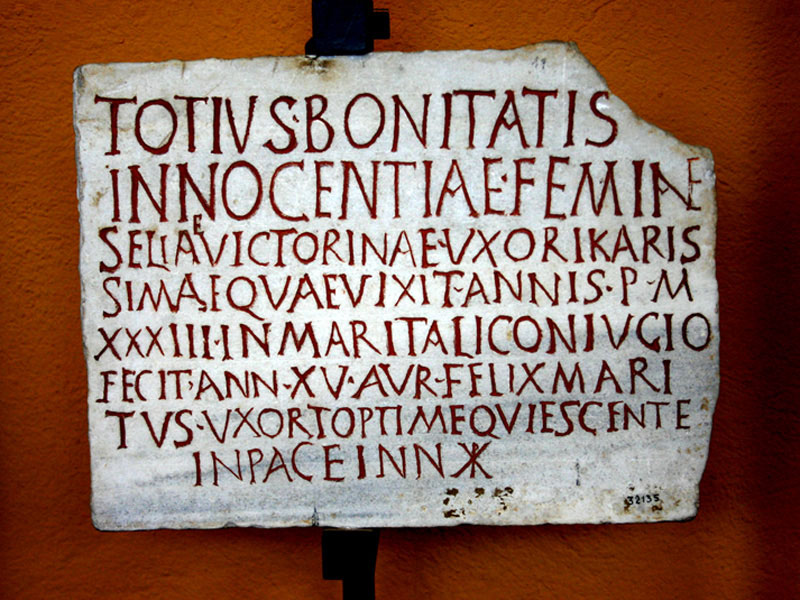 19
TOTIVS·BONITATIS
INNOCENTIAE·FEMINE
SELIAE VICTORINAE·VXORI KARIS
SIMAE QVAE VIXIT·ANNIS·P·M
XXXIIII·IN MARITALI CONIVGIO
FECIT·ANN·XV·AVR·FELIX MARI
TVS·VXORI OPTIME QVIESCENTE
IN PACE IN N
32135